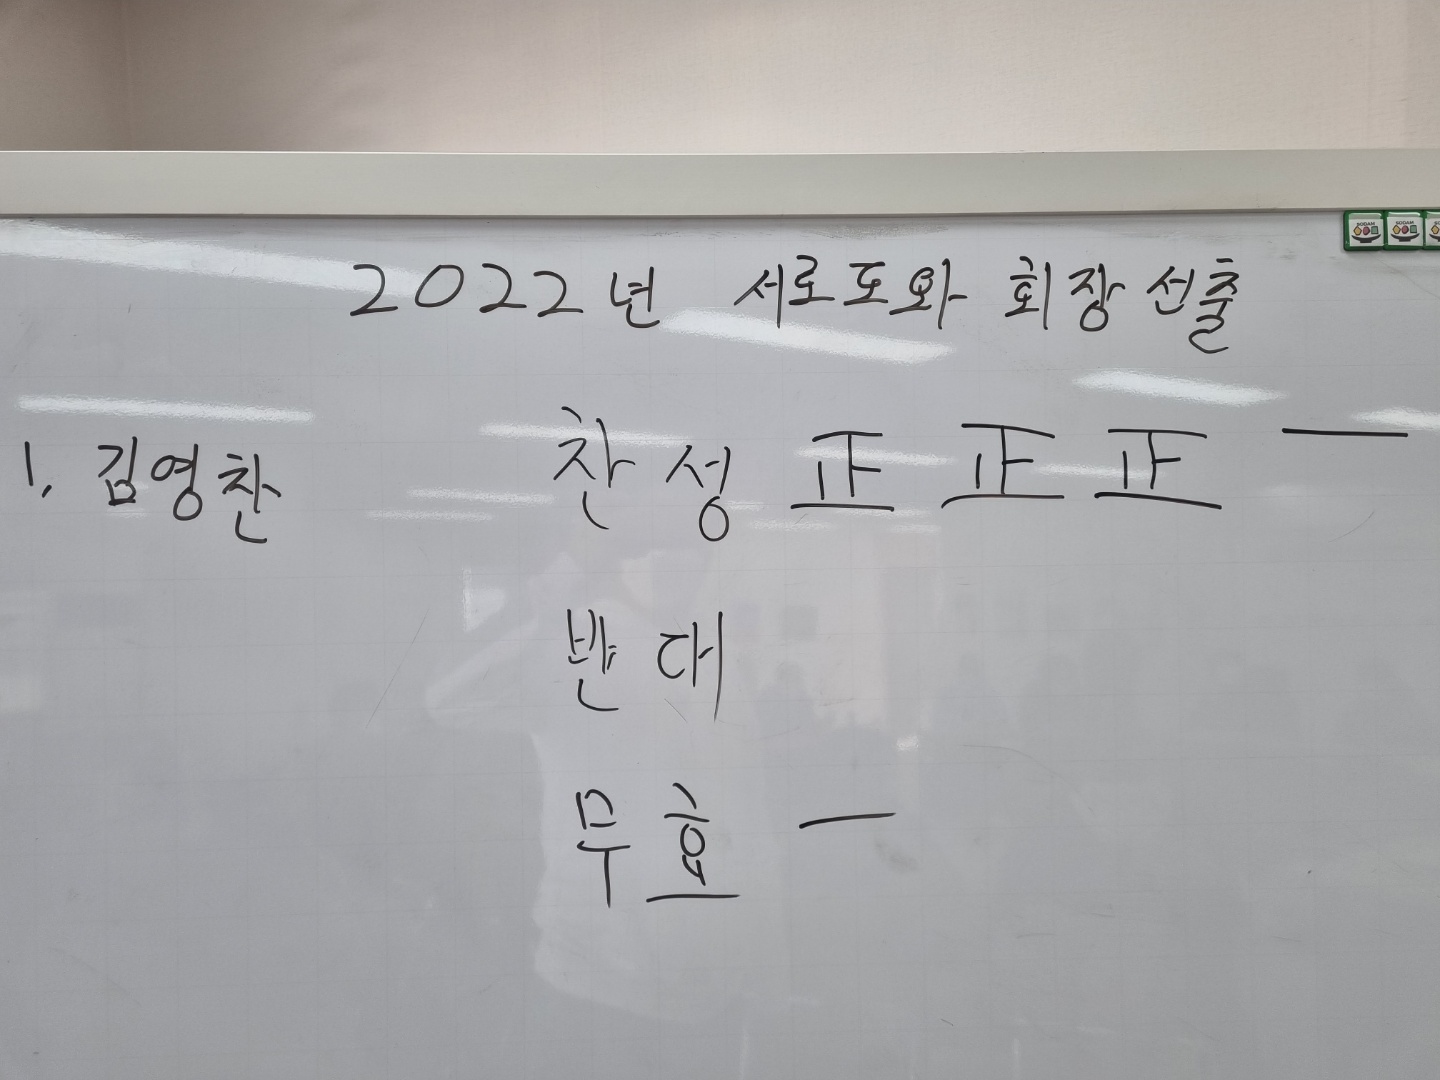 2022년 서로도와 회장선출
1. 김영찬 찬성 正 正 正 一
반대
무효 一
SODAM SODAM